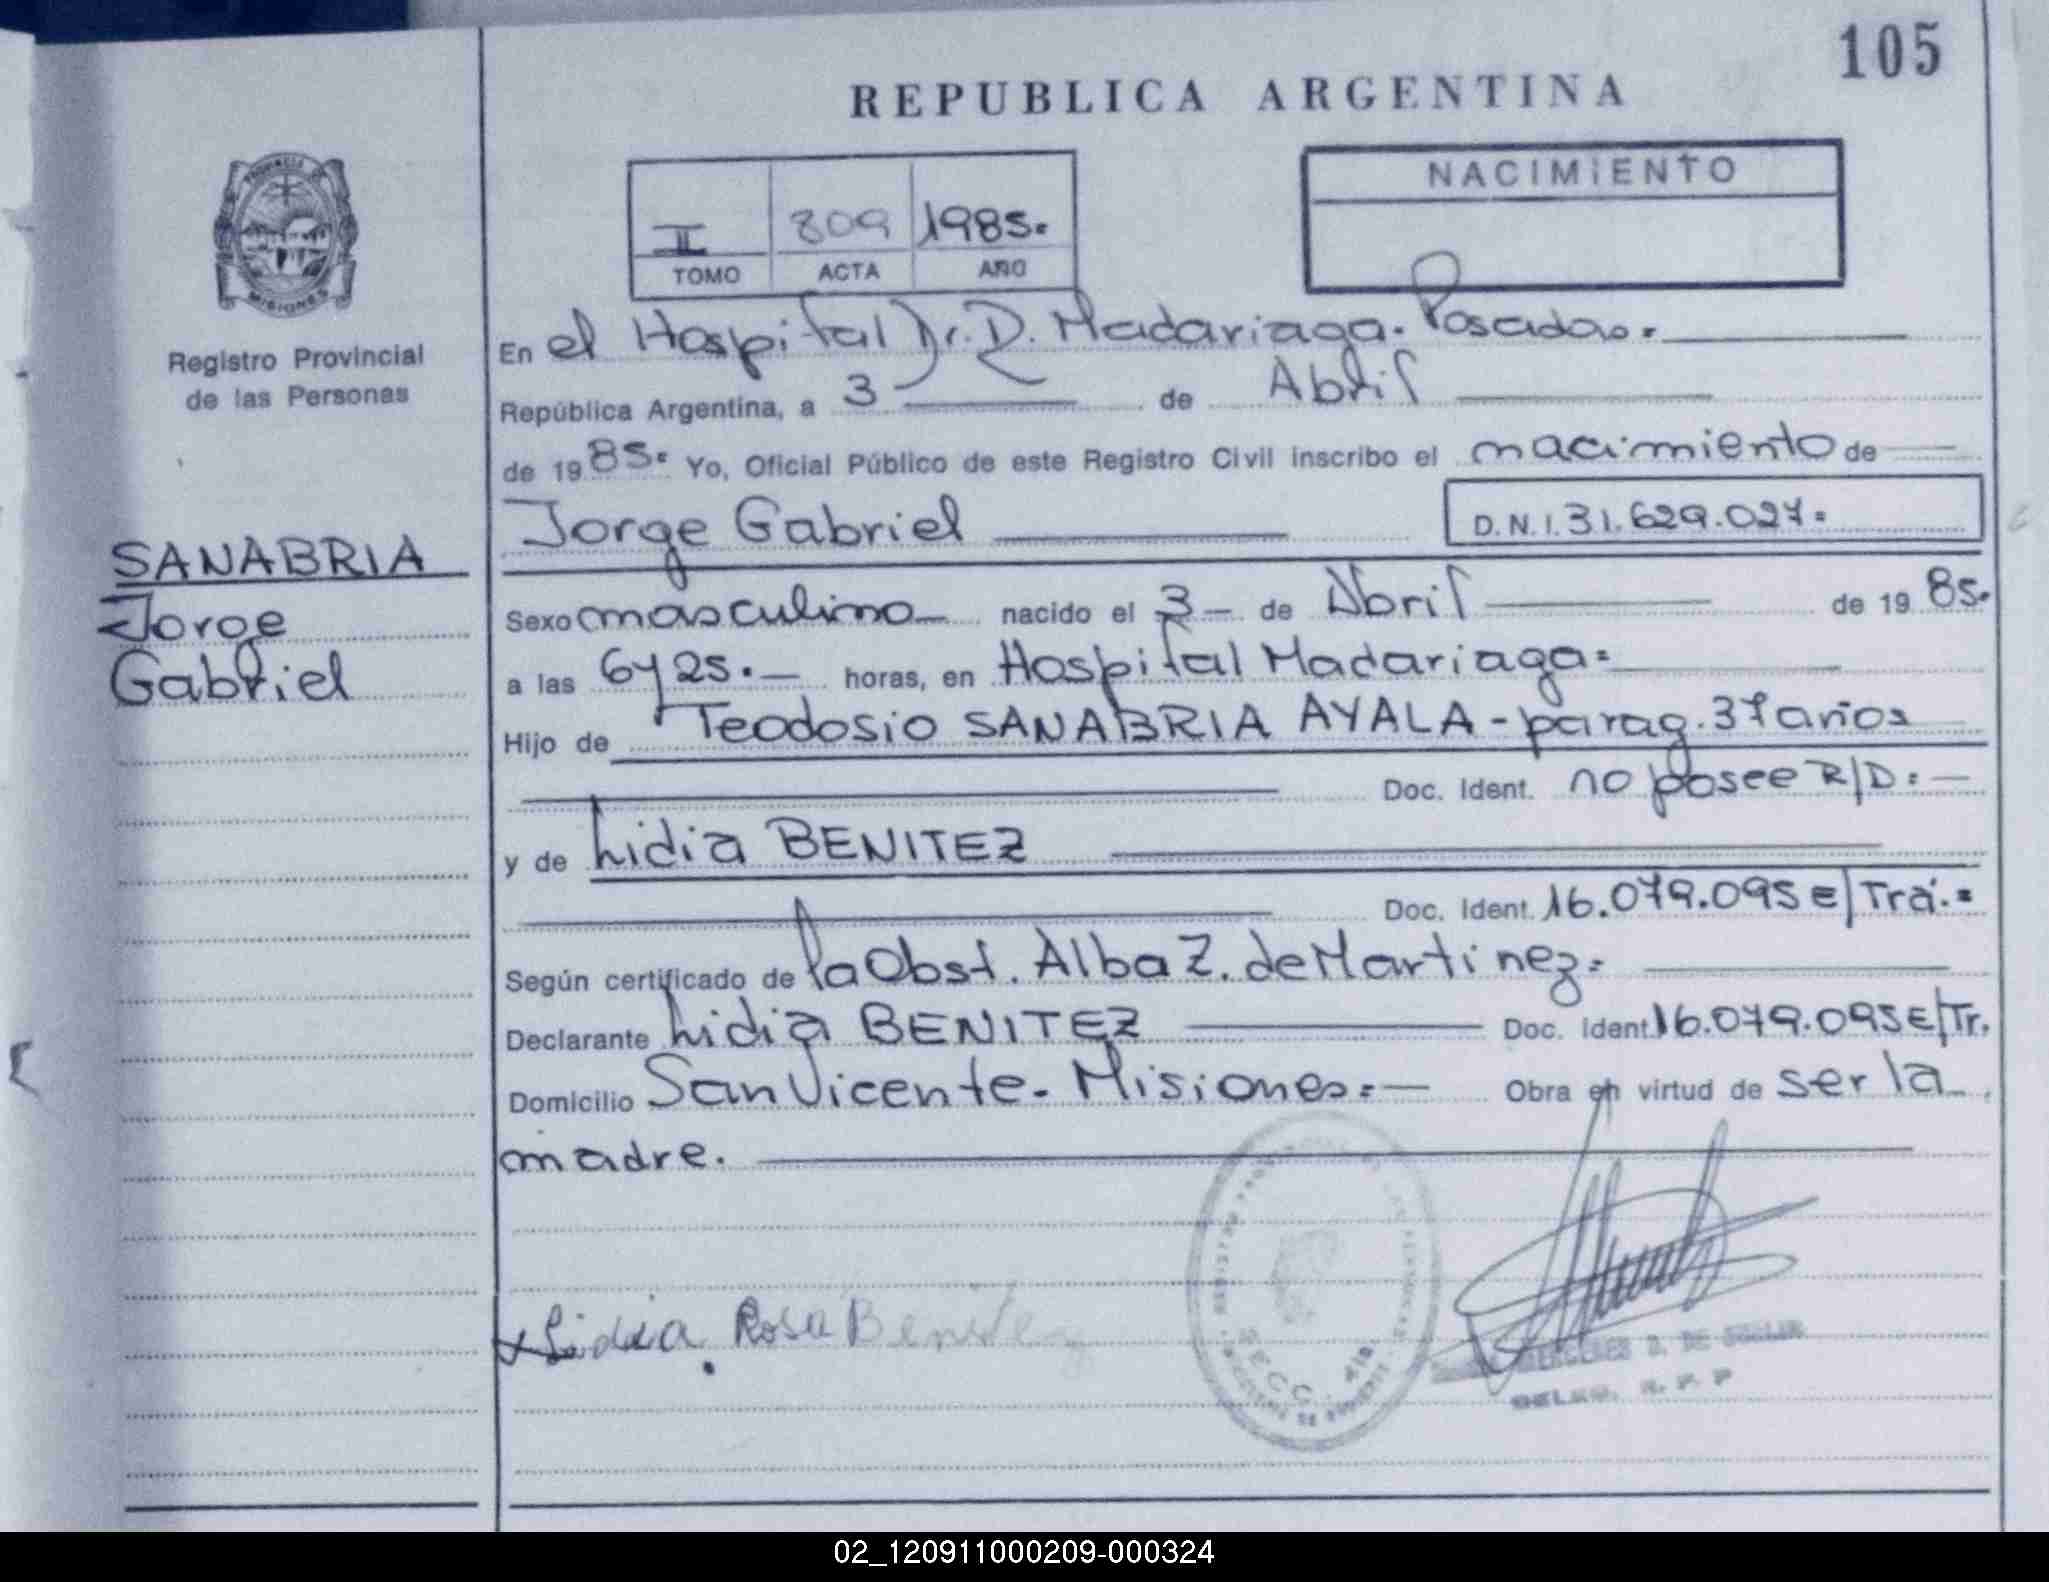 105
REPUBLICA ARGENTINA
PROVINCIA DE
MISIONES
Registro Provincial
de las Personas
II 809 1985.
TOMO ACTA AÑO
NACIMIENTO
En el Hospital Dr. R. Madariaga. Posadas.
República Argentina, a 3 de Abril
de 1985. Yo, Oficial Público de este Registro Civil inscribo el nacimiento de
Jorge Gabriel D.N.I. 31.629.027.
SANABRIA
Jorge
Gabriel
Sexo masculino nacido el 3 de Abril de 1985.
a las 6 y 25. horas, en Hospital Madariaga.
Hijo de Teodosio SANABRIA AYALA - parag. 37 años
Doc. Ident. no posee R/D.
y de Lidia BENITEZ
Doc. Ident. 16.079.095 E/Trá.
Según certificado de la Obst. Alba Z. de Martinez.
Declarante Lidia BENITEZ Doc. Ident. 16.079.095 E/Tr.
Domicilio San Vicente - Misiones. Obra en virtud de ser la
madre.
x Lidia Rosa Benitez
REGISTRO PROVINCIAL DE LAS PERSONAS
SECC.
MERCEDES D. DE
DELEG. R. P. P
02_120911000209-000324